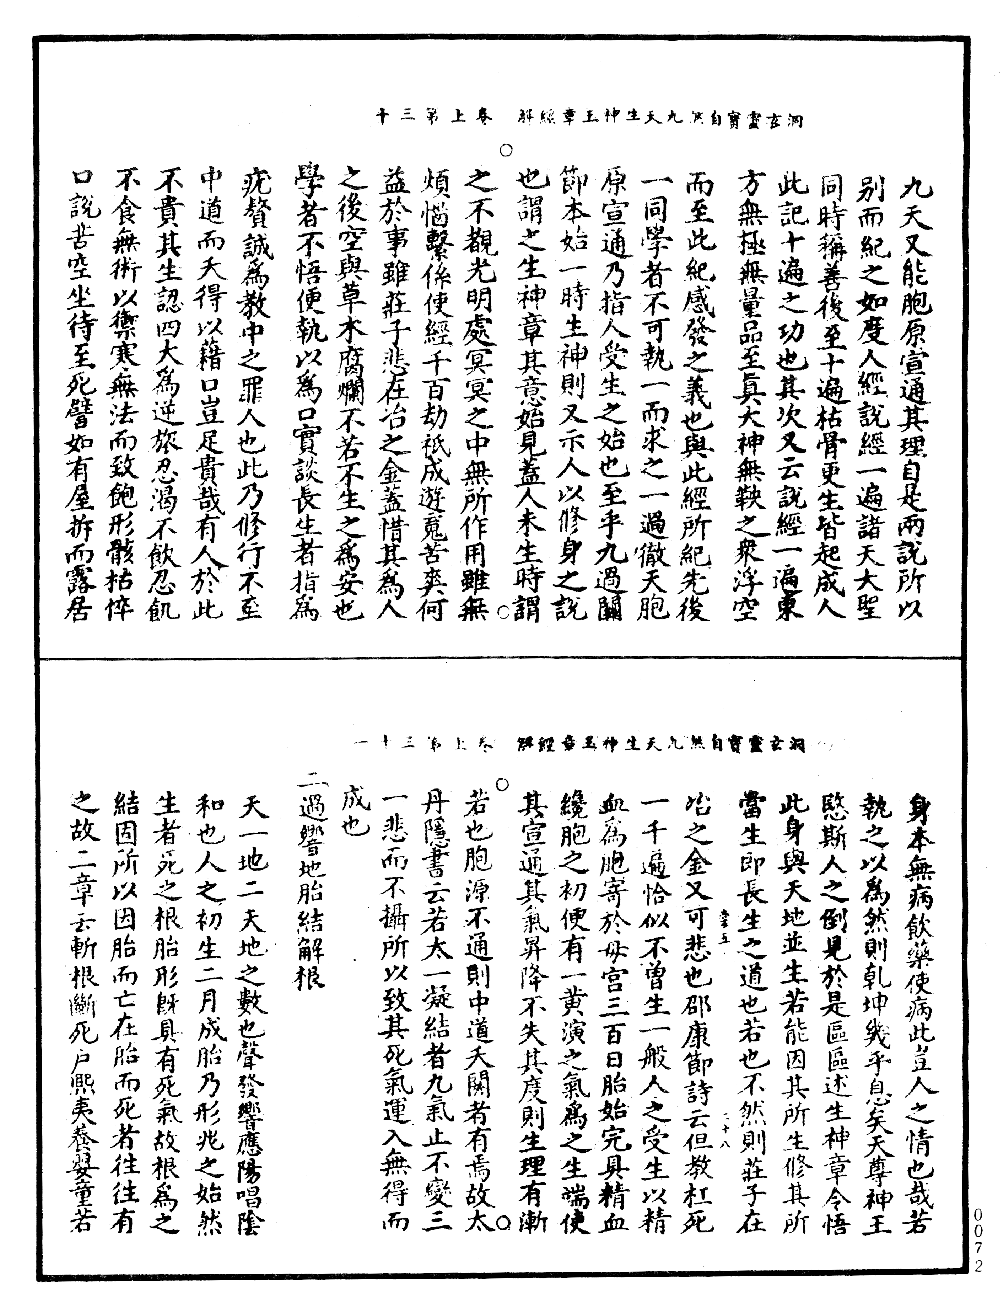 洞玄靈寶自然九天生神玉章經解　卷上第三十
九天又能胞原宣通其理自是兩說所以
別而紀之如度人經說經一遍諸天大聖
同時稱善後至十遍枯骨更生皆起成人
此記十遍之功也其次又云說經一遍東
方無極無量品至真大神無鞅之衆浮空
而至此紀感發之義也與此經所紀先後
一同學者不可執一而求之一過徹天胞
原宣通乃指人受生之始也至乎九過關
節本始一時生神則又示人以修身之說
也謂之生神章其意始見蓋人未生時謂
之不覩光明處冥冥之中無所作用雖無
煩惱繫係使經千百劫祇成遊𩲸苦爽何
益於事雖莊子悲在冶之金蓋惜其爲人
之後空與草木腐爛不若不生之爲安也
學者不悟便執以爲口實談長生者指爲
疣贅誠爲教中之罪人也此乃修行不至
中道而夭得以藉口豈足貴哉有人於此
不貴其生認四大爲逆旅忍渴不飲忍飢
不食無術以禦寒無法而致飽形骸枯悴
口說苦空坐待至死譬如有屋拆而露居
洞玄靈寶自然九天生神玉章經解　卷上第三十一
身本無病飲藥使病此豈人之情也哉若
執之以爲然則乾坤幾乎息矣天尊神王
愍斯人之倒見於是區區述生神章令悟
此身與天地並生若能因其所生修其所
當生即長生之道也若也不然則莊子在
冶之金又可悲也邵康節詩云但教杠死
一千遍恰似不曾生一般人之受生以精
血爲胞寄於母宮三百日胎始完具精血
纔胞之初便有一黃演之氣爲之生端使
其宣通其氣昇降不失其度則生理有漸
若也胞源不通則中道夭閼者有焉故太
丹隱書云若太一凝結者九氣止不變三
一悲而不攝所以致其死氣運入無得而
成也
二過響地胎結解根
天一地二天地之數也聲發響應陽唱陰
和也人之初生二月成胎乃形兆之始然
生者死之根胎形旣具有死氣故根爲之
結因所以因胎而亡在胎而死者往往有
之故二章云斬根斷死戶熙夷養嬰童若
0072